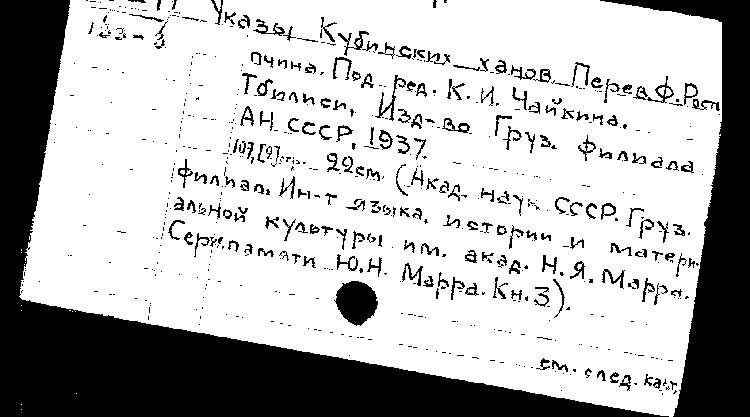 133-3
Указы Кубинских ханов Перев. Ф. Росто
пчина. Под ред. К. И. Чайкина.
Тбилиси, Изд-во Груз. филиала
АН СССР, 1937.
107,[2]стр. 22см (Акад. наук СССР. Груз.
филиал. Ин-т языка, истории и матери-
альной культуры им. акад. Н.Я. Марра.
Серия памяти Ю.Н. Марра. Кн. 3).
см. след. карт.